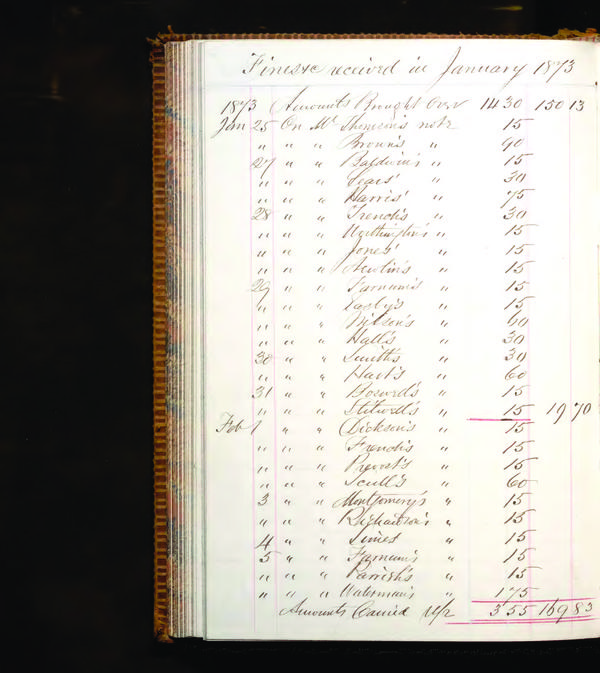 Fines &c received in January 1873
1873 Amounts Brought Over 14 30 150 13
Jan 25 On Mr Thomson's note 15
" " " Brown's " 90
27 " " Baldwin's " 15
" " " Sears' " 30
" " " Harris' " 75
28 " " French's " 30
" " " Worthington's " 15
" " " Jones' " 15
" " " Newlin's " 15
29 " " Farnum's " 15
" " " " 15
" " " Wilson's " 60
" " " Hall's " 30
30 " " Smith's " 30
" " " Hart's " 60
31 " " " 15
" " " Stilwell's " 15 19 70
Feb 1 " " Dickson's " 15
" " " French's " 15
" " " Prevost's " 15
" " " Scull's " 60
3 " " Montgomery's " 15
" " " Richardson's " 15
4 " " Simes " 15
5 " " Farnum's " 15
" " " Parrish's " 15
" " " Waterman's " 175
Amounts Carried Up 3 55 169 83